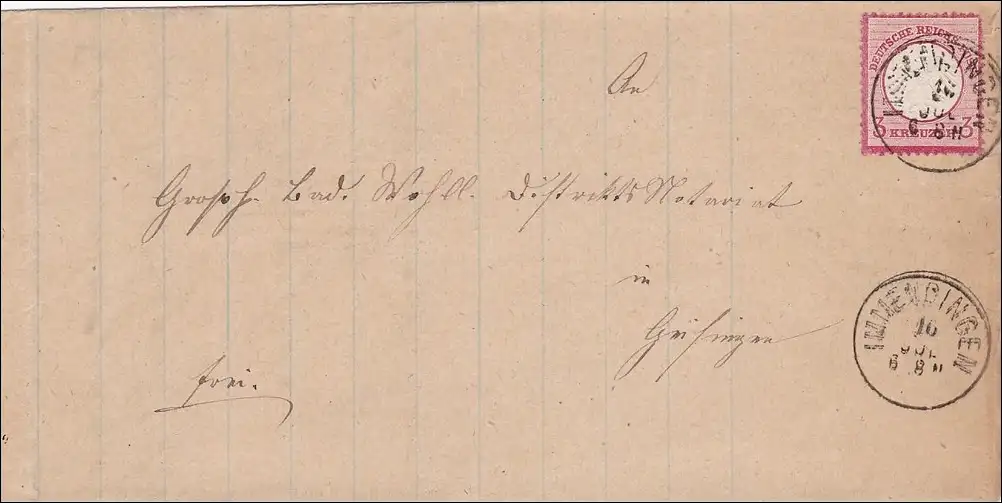 DEUTSCHE REICHS
3 KREUZER 3
IMMENDINGEN
JUL
6 8 N
An
Grossh. Bad. Wohll. Distrikts Notariat
in
Geisingen
frei.
IMMENDINGEN
16
JUL
6 8 N